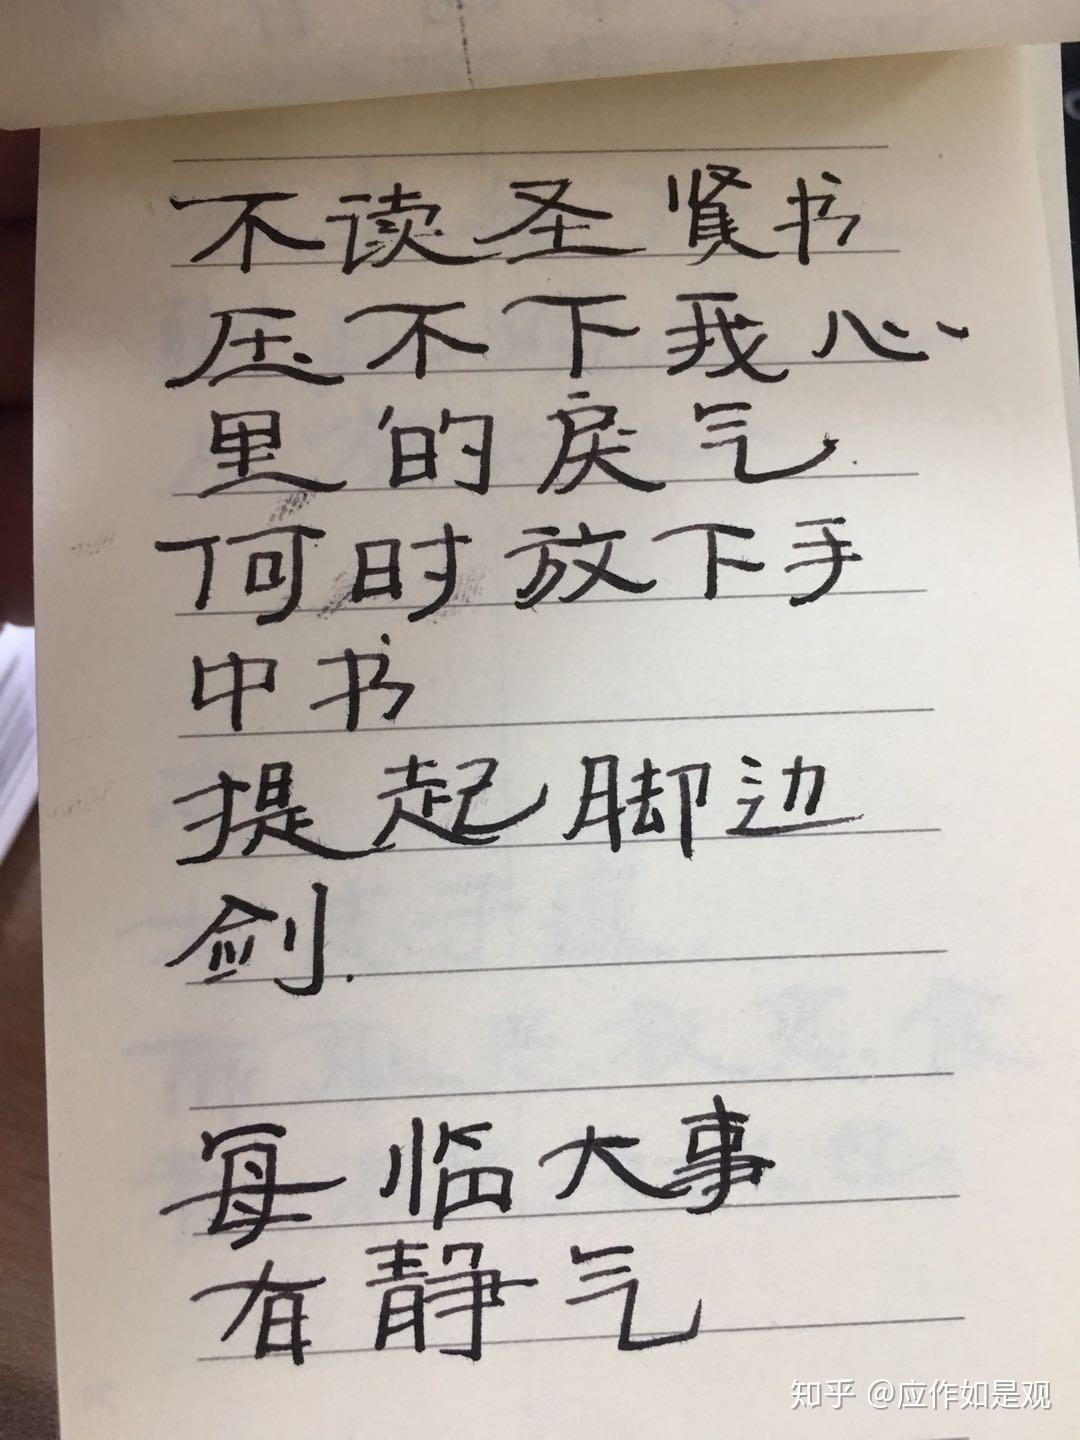 不读圣贤书
压不下我心
里的戾气.
何时放下手
中书
提起脚边
剑.
每临大事
有静气
知乎 @应作如是观